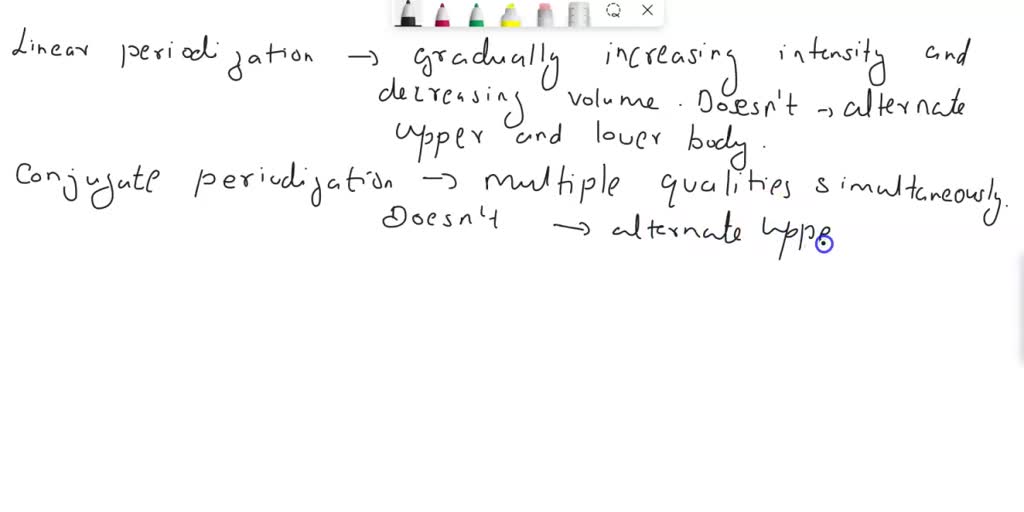 Linear periodization → gradually increasing intensity and
decreasing volume. Doesn't → alternate
upper and lower body.
Conjugate periodization → multiple qualities simultaneously.
Doesn't → alternate uppe